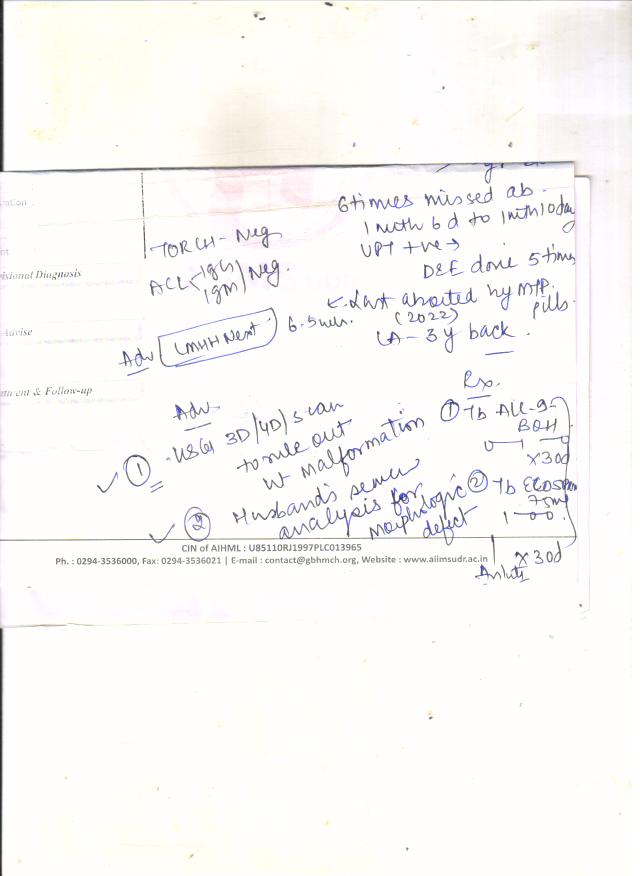 6 times missed ab.
1 mnth 6 d to 1 mnth 10 day
UPT +ve →
D&E done 5 times
Last aborted by MTP pills.
(2022)
LA - 3 y back.
TORCH - Neg
ACL IgG / IgM Neg.
isional Diagnosis
Advise
Adv LMWH Next 6.5
tment & Follow-up
Adv
① - USG 3D/4D/scan
to rule out
ut malformation
② Husband's semen
analysis for
morphologic
defect
Rx.
① Tb
BOH
0-1-0
X30d
② Tb ECOSPRIN
75mg
1-0-0.
X30d
CIN of AIHML : U85110RJ1997PLC013965
Ph. : 0294-3536000, Fax: 0294-3536021 | E-mail : contact@gbhmch.org, Website : www.aiimsudr.ac.in